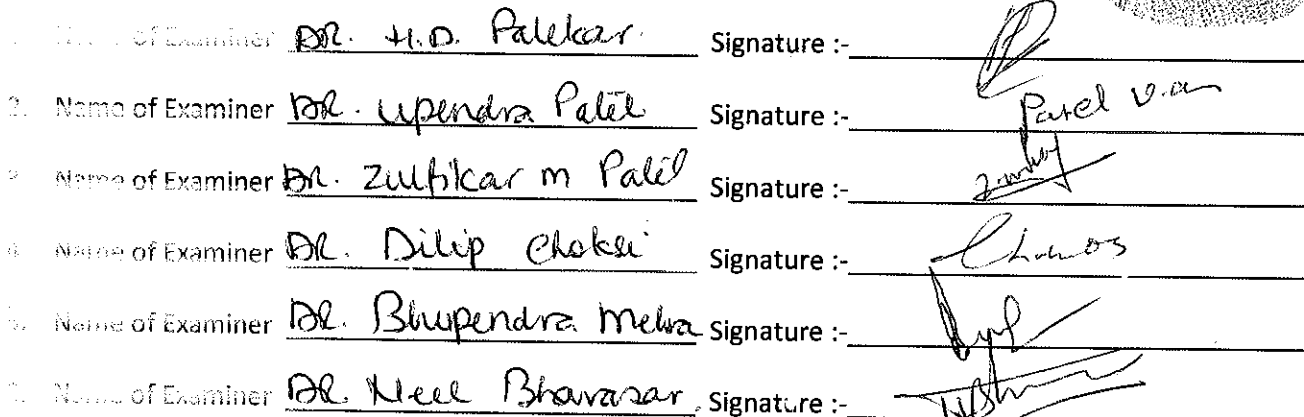 Name of Examiner DR. H.D. Palekar. Signature :-
2. Name of Examiner DR. Upendra Patil Signature :- Patel U.
3. Name of Examiner DR. Zulfikar m Patil Signature :-
4. Name of Examiner DR. Dilip Choksi Signature :-
5. Name of Examiner DR. Bhupendra Mehra Signature :-
Name of Examiner DR. Neel Bhavasar. Signature :-